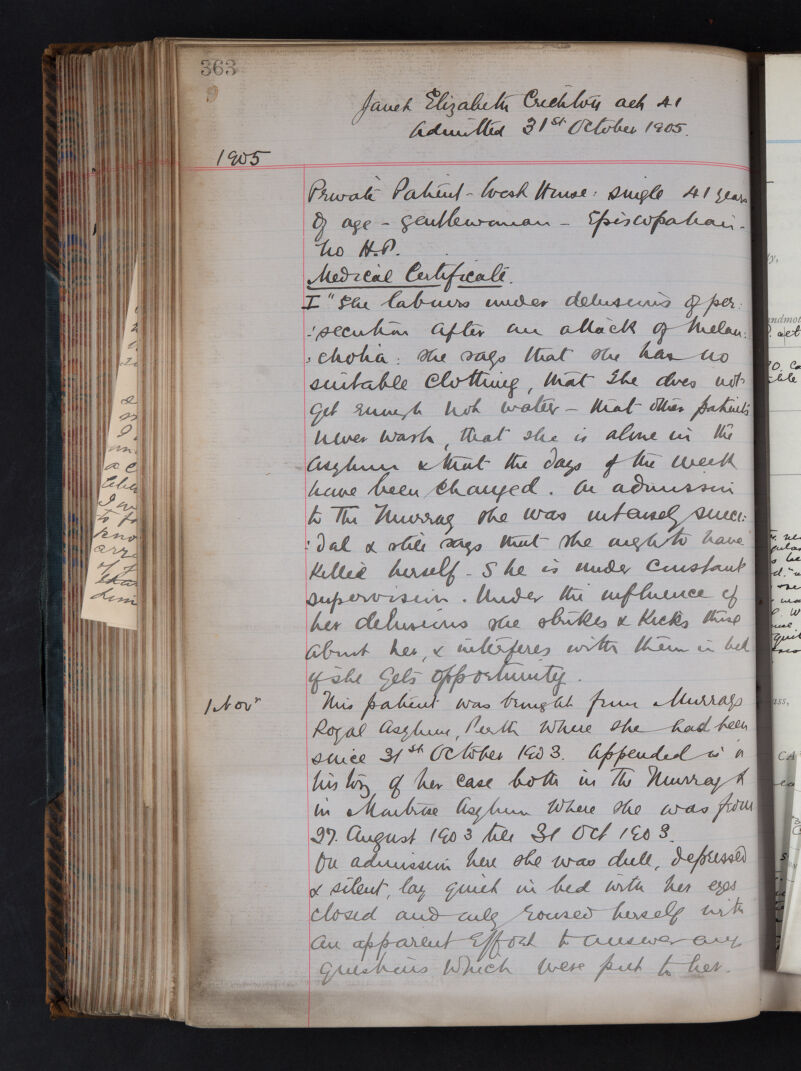 363
9
Janet Elizabeth Crichton aet 41
Admitted 31st October 1905.
1905
Private Patient - West House: single 41 years
of age - gentlewoman - Episcopalian -
no H.P.
Medical Certificate.
I "She labours under delusions of per:
:secution after an attack of Melan:
:cholia: she says that she has no
suitable clothing, that she does not
get enough hot water - that other patients
never wash, that she is alone in the
asylum & that the days of the week
have been changed. On admission
to The Murray she was intensely suici:
:dal & still says that she ought to have
killed herself - She is under constant
supervision. Under the influence of
her delusions she strikes & kicks those
about her, & interferes with them in bed
if she gets opportunity.
1 Novr
This patient was brought from Murrays
Royal Asylum, Perth where she had been
since 31st October 1903. Appended is a
history of her case both in The Murray &
in Montrose Asylum where she was from
27. August 1903 till 31 Oct 1903.
On admission here she was dull, depressed
& silent, lay quiet in bed with her eyes
closed and only roused herself with
an apparent effort to answer any
questions which were put to her.